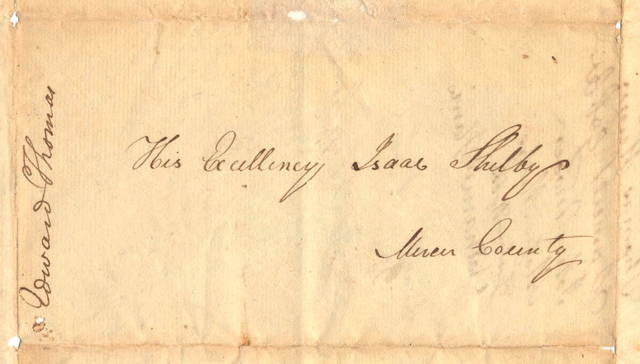 His Excellency Isaac Shelby
Mercer County
Edward Thomas